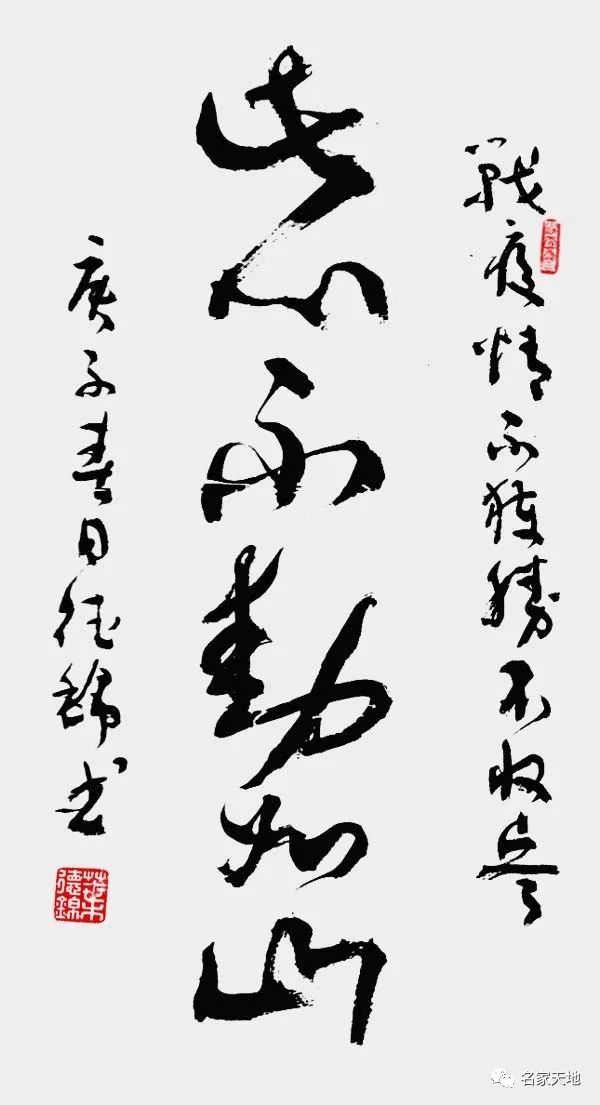 戰疫情不獲勝不收兵
此心不動如山
庚子春日德錦書
葉德錦
名家天地